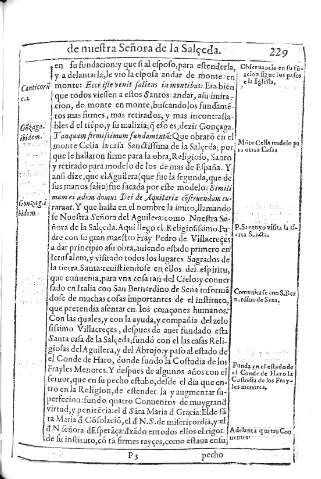 de nuestra Señora de la Salceda.
229
en su fundacion: y que si al esposo, para estenderla,
y a delantarla, le vio la esposa andar de monte en
monte: Ecce iste venit saliens in montibus: Era bien
que todos viessen a estos Sanctos andar, a su imita-
cion, de monte en monte, buscando los fundamē-
tos mas firmes, mas retirados, y mas incontrasta-
bles
Tanquam firmissimum fundamentū: Que obrarō en el
monte Celia la casa Sanctissima de la Salceda, por
que le hallaron firme para la obra, Religioso, Santo
y retirado para modelo de los de mas de España. Y
ansi dize, que el Aguilera (que fue la segunda, que de
sus manos salio) fue sacada por este modelo.
Y que hasta en el nombre la imito, llamando
se Nuestra Señora del Aguilera: como Nuestra Se-
ñora de la Salceda. Aqui llego el Religiosissimo Pa
dre con su gran maestro Fray Pedro de Villacreces
a dar principio a su obra, auiendo estado primero en
Ierusalem, y visitado todos los lugares Sagrados de
la tierra Santa: reuistiendose en ellos del espiritu,
que conuenia, para vna cosa tan del Cielo: y comen-
tado en Italia con San Bernardino de Sena
dose de muchas cosas importantes de el instituto,
que pretendia asentar en los coraçones humanos.
Con las quales, y con la ayuda, y compañia del zelo
sissimo Villacreces, despues de auer fundado esta
Santa casa de la Salceda, fundó con el las casas Reli-
giosas del Aguilera, y del Abrojo: y paso al estado de
el Conde de Haro, donde fundo la Custodia de los
Frayles Menores. Y despues de algunos años con el
feruor, que en su pecho estubo, desde el dia que en-
tro en la Religion, de estender la y augmentar su
perfecion: fundo quatro Conuentos de muy grand
virtud, y penitēcia: el d Sāta Maria d Gracia: El de Sā
ta Maria d Cōsolaciō, el d N. S. de misericordia, y el
d N señora d Esperāça: dexādo en todos ellos el rigor
de su instituto, cō tā firmes rayçes, como estaua en su
P 3
pecho
Canticorū
c. 2.
Gōzaga.
ibidem.
Gonzag. i
bidem.
la Iglesia.
Mōte Celia modelo pa
ra otras Casas
P. Santoyo visita la tie
rra Sancta.
Comunicase con S. Ber
nardino de Sena.
Funda en el estado de
el Conde de Haro la
Custodia de los Fray-
les menores.
Adelanta quatro Con
uentos.